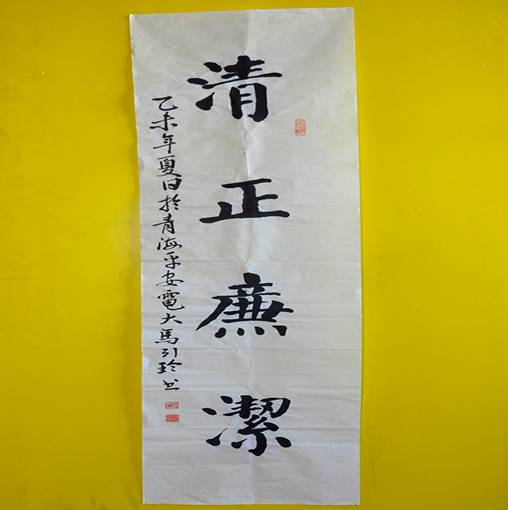 清正廉潔
乙未年夏日於青海平安電大馬引玲书